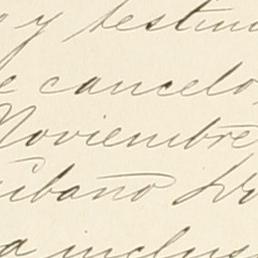 y testim
cancelo
Noviembre
cibano
a inclus